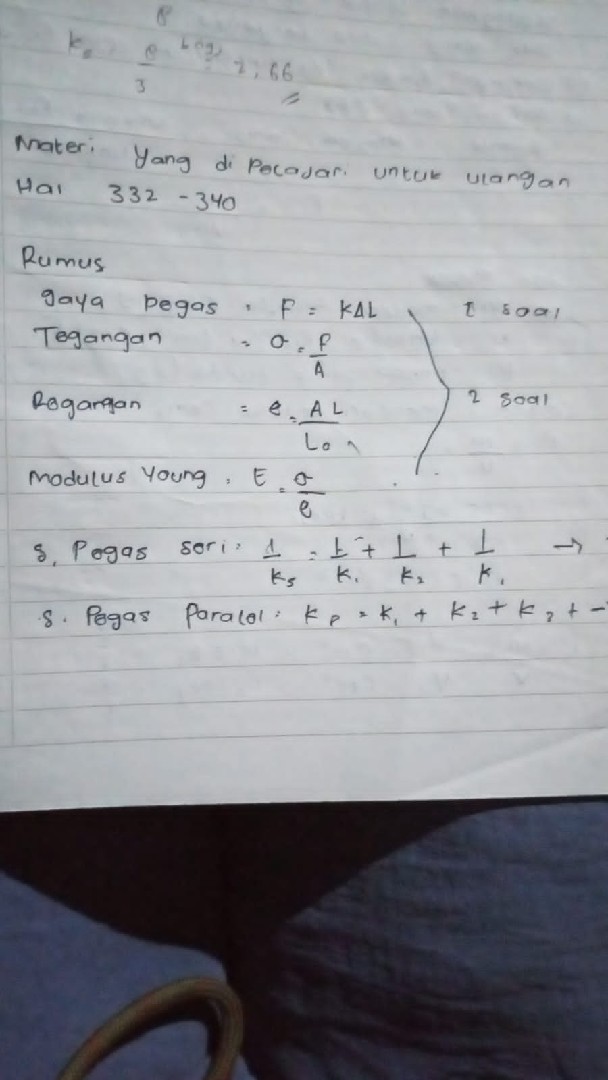 8
k. 8 = 2,66
3
Materi Yang di Pecajari untuk ulangan
Hal 332 - 340
Rumus
gaya pegas : F = KΔL 1 soal
Tegangan = σ = F
A
Regangan = e = ΔL 2 soal
Lo
Modulus Young : E = σ
e
S. Pegas seri : 1 = 1 + 1 + 1 →
ks k₁ k₂ k₁
S. Pegas Paralel : kp = k₁ + k₂ + k₃ + -